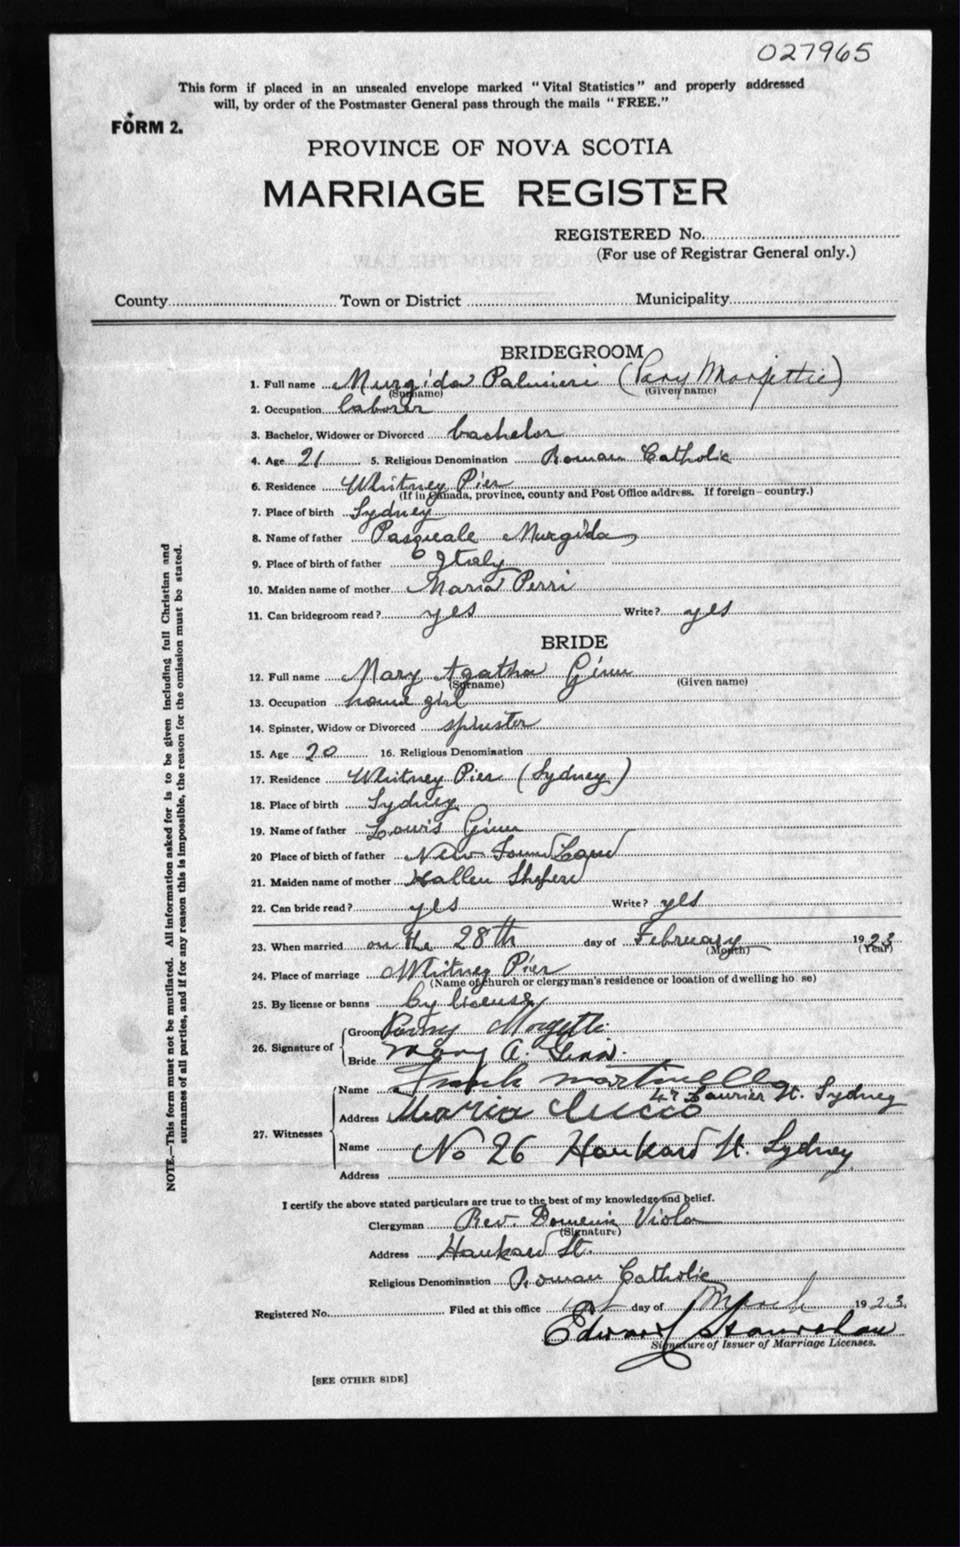 027965
This form if placed in an unsealed envelope marked "Vital Statistics" and properly addressed
will, by order of the Postmaster General pass through the mails "FREE."
FORM 2.
PROVINCE OF NOVA SCOTIA
MARRIAGE REGISTER
REGISTERED No.
(For use of Registrar General only.)
County Town or District Municipality
BRIDEGROOM
1. Full name Murgida Palmieri
(Surname) (Given name)
2. Occupation laborer
3. Bachelor, Widower or Divorced bachelor
4. Age 21 5. Religious Denomination Roman Catholic
6. Residence Whitney Pier
(If in Canada, province, county and Post Office address. If foreign—country.)
7. Place of birth Sydney
8. Name of father Pasquale Murgida
9. Place of birth of father Italy
10. Maiden name of mother Maria Perri
11. Can bridegroom read? yes Write? yes
BRIDE
12. Full name Mary Agatha Ginn
(Surname) (Given name)
13. Occupation house girl
14. Spinster, Widow or Divorced spinster
15. Age 20 16. Religious Denomination
17. Residence Whitney Pier (Sydney)
18. Place of birth Sydney
19. Name of father Louis Ginn
20 Place of birth of father New Found Land
21. Maiden name of mother Hallen
22. Can bride read? yes Write? yes
23. When married on the 28th day of February 1923
(Month) (Year)
24. Place of marriage Whitney Pier
(Name of church or clergyman's residence or location of dwelling ho se)
25. By license or banns by license
26. Signature of
Groom
Bride Mary A. Ginn.
27. Witnesses
Name Frank Martinello
47 Laurier St. Sydney
Address Maria Cucco
Name No 26 Hankard St. Sydney
Address
I certify the above stated particulars are true to the best of my knowledge and belief.
Clergyman Rev. Domenic Viola
(Signature)
Address Hankard St.
Religious Denomination Roman Catholic
Registered No. Filed at this office 1st day of March 1923.
Edward
Signature of Issuer of Marriage Licenses.
[SEE OTHER SIDE]
NOTE.—This form must not be mutilated. All information asked for is to be given including full Christian and
surnames of all parties, and if for any reason this is impossible, the reason for the omission must be stated.